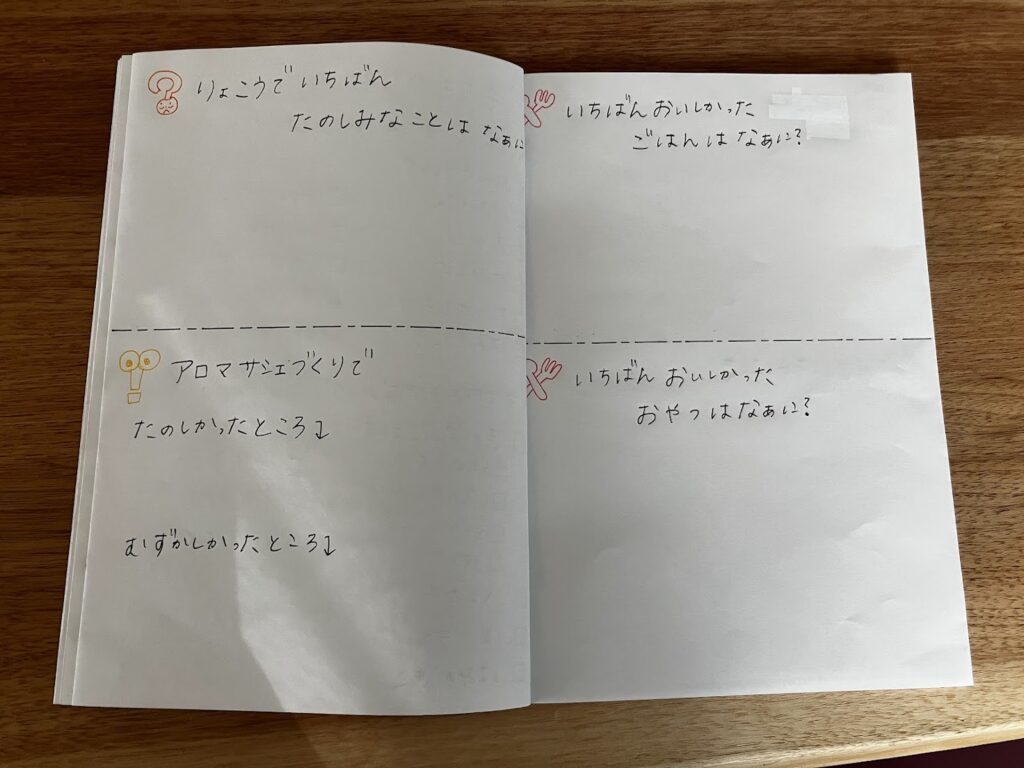 りょこうで いちばん
たのしみなことは なぁに
アロマサシェづくりで
たのしかったところ↓
むずかしかったところ↓
いちばん おいしかった
ごはんは なぁに?
いちばん おいしかった
おやつは なぁに?